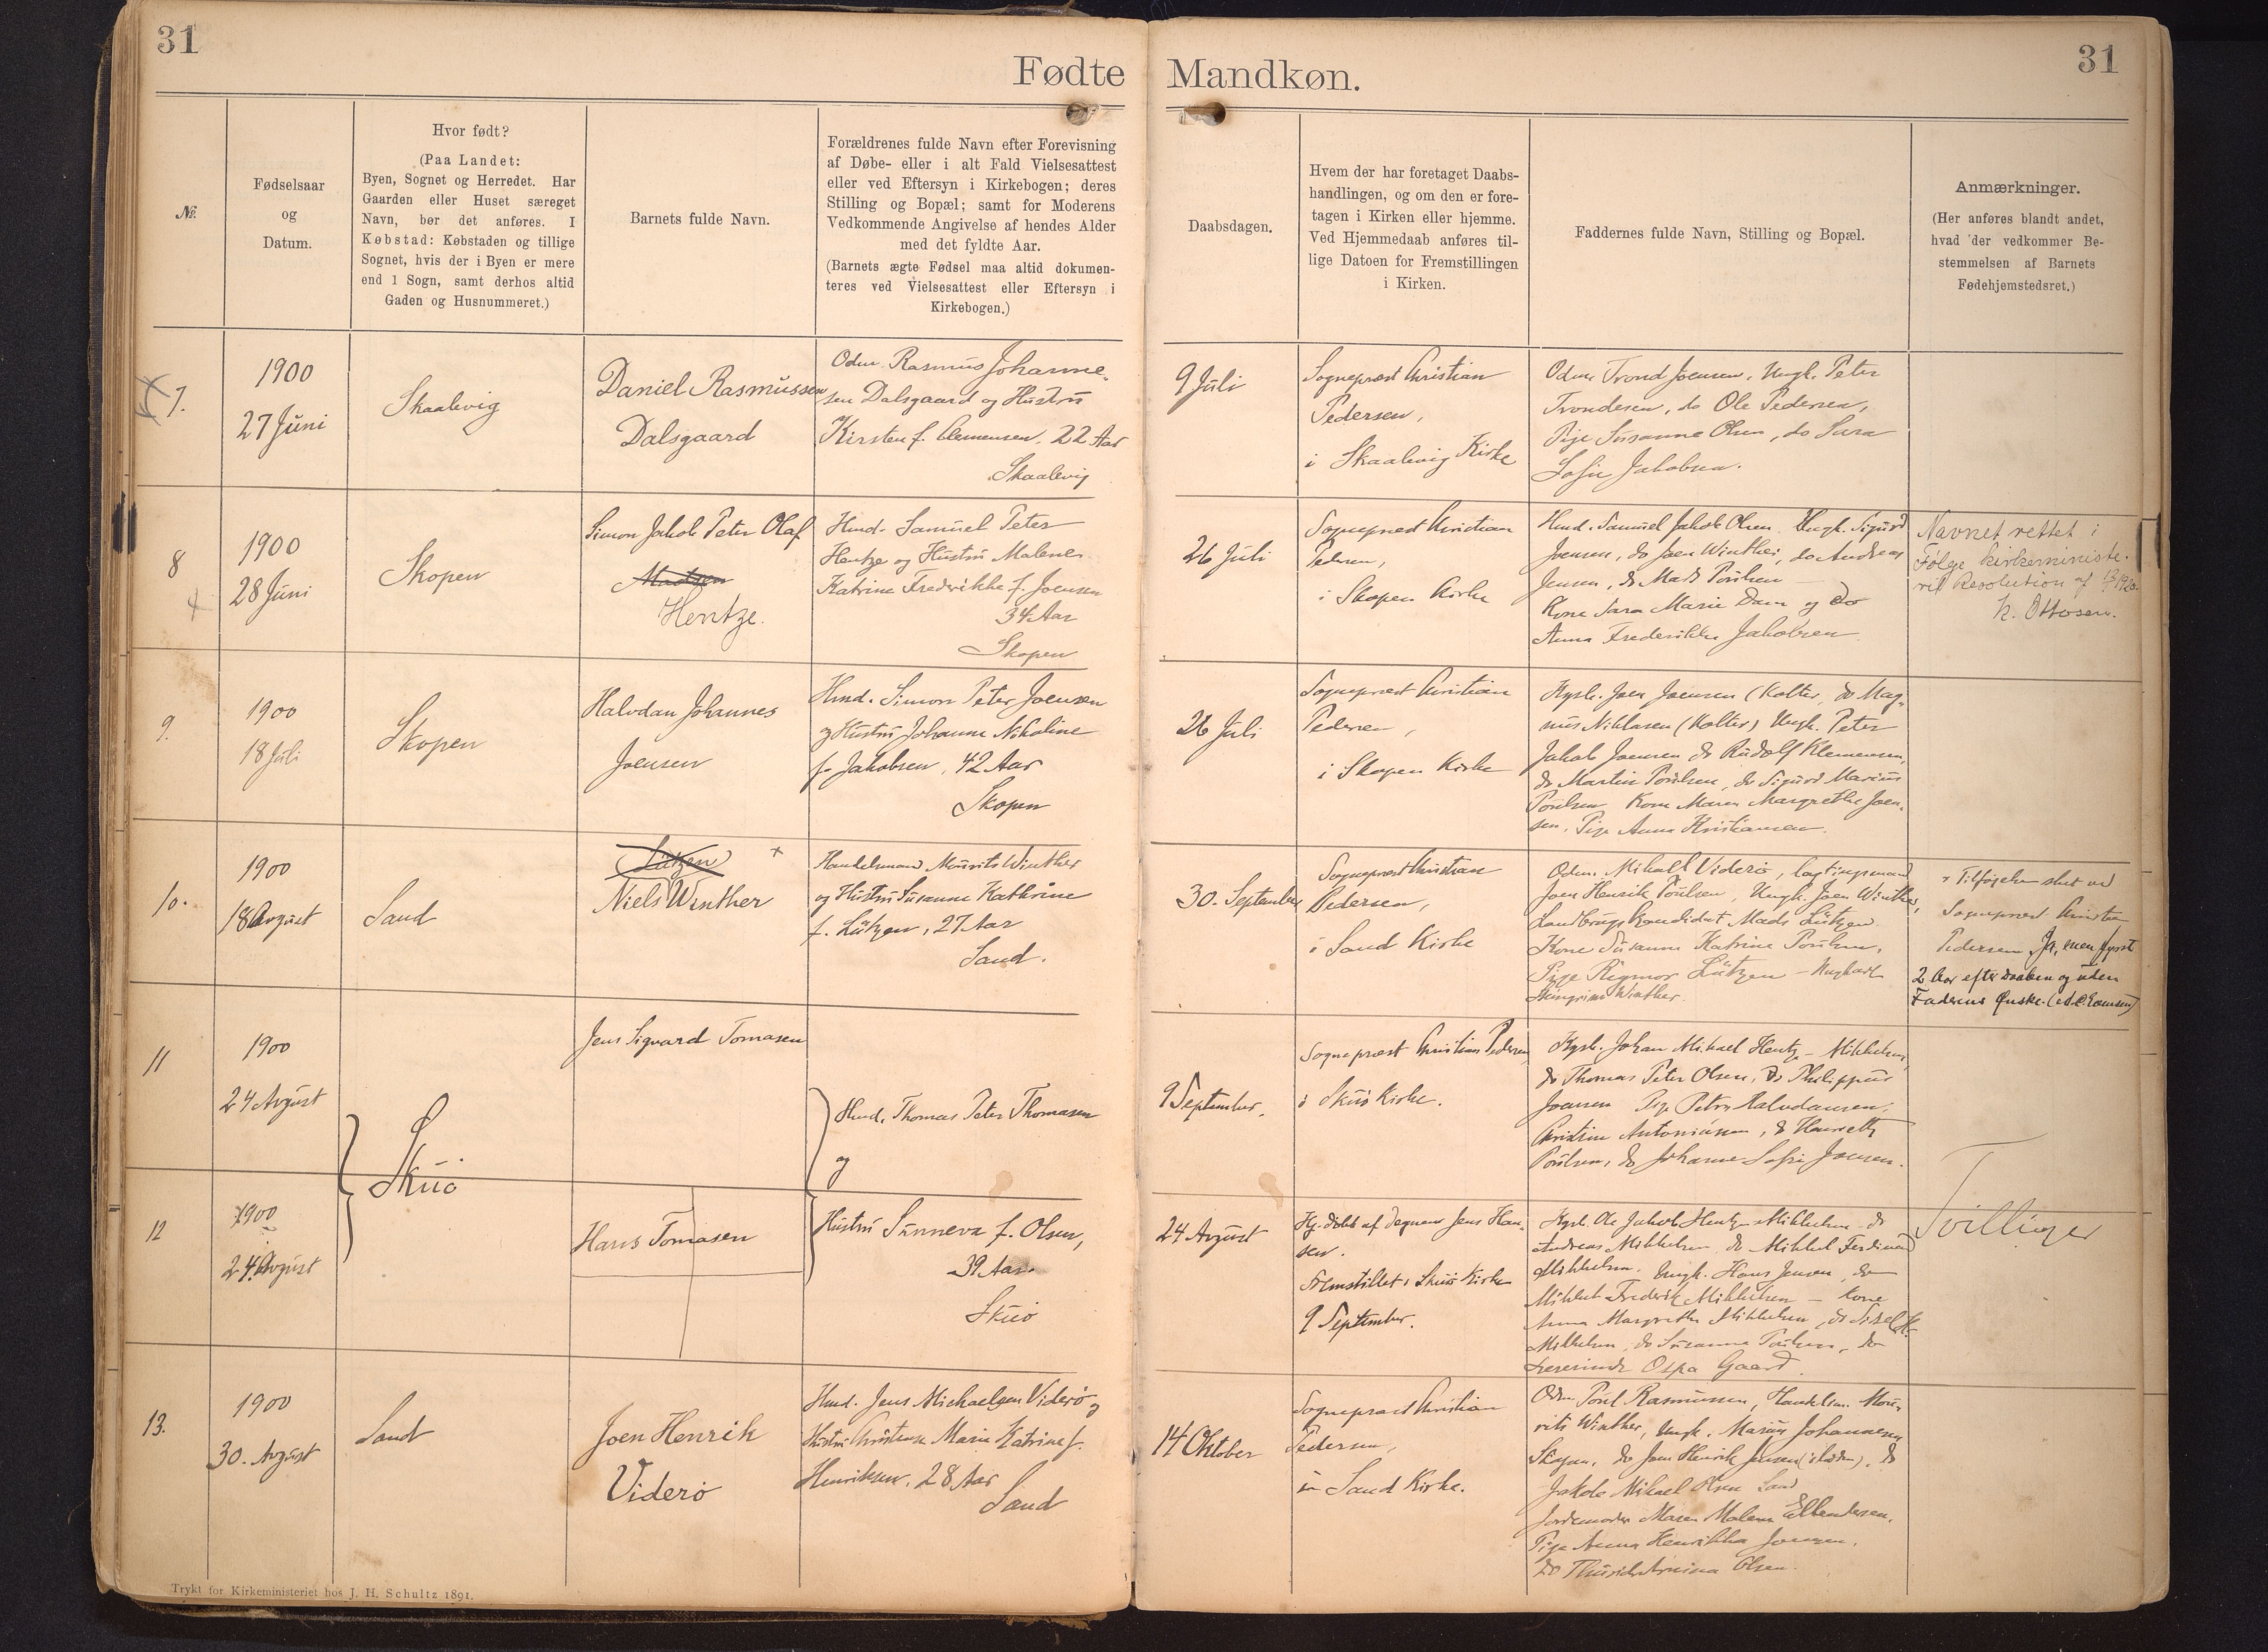 31
Fødte
Mandkøn.
31
№.
Fødselsaar
og
Datum.
Hvor født?
(Paa Landet:
Byen, Sognet og Herredet. Har
Gaarden eller Huset særeget
Navn, bør det anføres. I
Købstad: Købstaden og tillige
Sognet, hvis der i Byen er mere
end 1 Sogn, samt derhos altid
Gaden og Husnummeret.)
Barnets fulde Navn.
Forældrenes fulde Navn efter Forevisning
af Døbe- eller i alt Fald Vielsesattest
eller ved Eftersyn i Kirkebogen; deres
Stilling og Bopæl; samt for Moderens
Vedkommende Angivelse af hendes Alder
med det fyldte Aar.
(Barnets ægte Fødsel maa altid dokumen-
teres ved Vielsesattest eller Eftersyn i
Kirkebogen.)
Daabsdagen.
Hvem der har foretaget Daabs-
handlingen, og om den er fore-
tagen i Kirken eller hjemme.
Ved Hjemmedaab anføres til-
lige Datoen for Fremstillingen
i Kirken.
Faddernes fulde Navn, Stilling og Bopæl.
Anmærkninger.
(Her anføres blandt andet,
hvad der vedkommer Be-
stemmelsen af Barnets
Fødehjemstedsret.)
7.
1900
27 Juni
Skaalevig
Daniel Rasmussen
Dalsgaard
Odm. Rasmus Johanne-
sen Dalsgaard og Hustru
Kirsten f. Clemensen. 22 Aar
Skaalevig
9 Juli
Sognepræst Christian
Pedersen,
i Skaalevig Kirke
Odm. Trond Joensen, Ungk. Peter
Trondesen, do Ole Pedersen,
Pige Susanna Olsen, do Sara
Sofie Jakobsen.
8
1900
28 Juni
Skopen
Simon Jakob Peter Olaf
Madsen
Hentze.
Hmd. Samuel Peter
Hentze og Hustru Malene
Katrine Frederikke f. Joensen
34 Aar
Skopen
26 Juli
Sognepræst Christian
Pedersen,
i Skopen Kirke
Hmd. Samuel Jakob Olsen Ungk. Sigurd
Joensen, do Joen Winther, do Andreas
Jensen, do Mads Poulsen
Kone Sara Marie Dam og do
Anna Frederikke Jakobsen
Navnet rettet i
Følge kirkeministe-
riel Resolution af
K. Ottosen.
9.
1900
18 Juli
Skopen
Halvdan Johannes
Joensen
Hmd. Simon Peter Joensen
og Hustru Johanne Nikoline
f. Jakobsen, 42 Aar
Skopen
26 Juli
Sognepræst Christian
Pedersen,
i Skopen Kirke
Joen Joensen (Kolter, do Mag-
nus Niklasen (Kolter) Ungk. Peter
Jakob Joensen do Rudolf Klemensen,
do Martin Poulsen, do Sigurd Marius
Poulsen Kone Maren Margrethe Joen-
sen, Pige Anna Kristiansen.
10.
1900
18 August
Sand
Lützen
Niels Winther
Handelsmand Mourits Winther
og Hustru Susanne Kathrine
f. Lützen, 27 Aar
Sand.
30. September
Sognepræst Christian
Pedersen,
i Sand Kirke
Odm. Mikall Viderø, Lagtingsmand
Joen Henrik Poulsen, Ungk. Joen Winther,
Landbrugskandidat Mads Lützen
Kone Susanne Katrine Poulsen,
Pige Rigmor Lützen - Ungkarl
Winther.
Tilføjelsen sket ved
Sognepræst Christian
Pedersen. Ja, men først
2 Aar efter Daaben og uden
Faderens Ønske.
11
1900
24 August
Skuø
Jens Sigvard Tomasen
Hmd. Thomas Peter Thomasen
og
9 September.
Sognepræst Christian Pedersen
i Skuø Kirke.
Johan Mikael Hentze - Mikkelsen,
do Thomas Peter Olsen, do Philippus
Joensen Pige Petra Halvdansen,
Christine Antoniusen, do Henrietta
Poulsen, do Johanne Sofie Joensen.
12
1900
24 August
Hans Tomasen
Hustru Sunneva f. Olsen,
39 Aar.
Skuø
24 August
Hj. døbt af Degnen Jens Han-
sen.
Fremstillet i Skuø Kirke
9 September.
Ole Jakob Hentze Mikkelsen do
Andreas Mikkelsen do Mikkel Ferdinand
Mikkelsen. Ungk. Hans Jensen, do
Mikkel Frederik Mikkelsen - Kone
Anna Margrethe Mikkelsen, do Sissel K.
Mikkelsen, do Susanna Poulsen, do
Gaard.
Tvillinger
13.
1900
30. August
Sand
Joen Henrik
Viderø
Hmd. Jens Michaelsen Viderø og
Hustru Christense Marie Katrine f.
Henriksen. 28 Aar
Sand
14 Oktober
Sognepræst Christian
Pedersen,
i Sand Kirke.
Odm. Poul Rasmussen, Handelsm. Mou-
rits Winther, Ungk. Marius Johannesen
Skopen, do Joen Henrik Jensen, do
Jakob Mikael Olsen Sand
Jordemoder Maren Malene Ellendersen.
Pige Anna Henrikka Joensen.
do Olsen.
Trykt for Kirkeministeriet hos J. H. Schultz 1891.